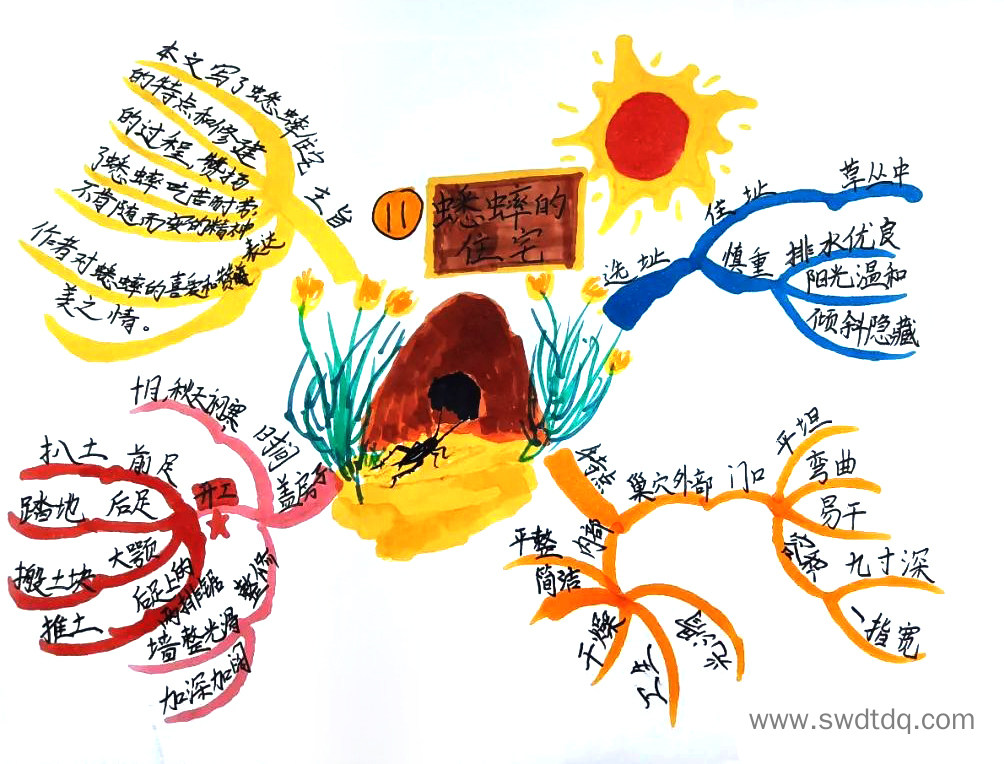 11
蟋蟀的
住宅
主旨
本文写了蟋蟀住宅
的特点和修建
的过程,赞扬
了蟋蟀吃苦耐劳,
不肯随而安的精神
表达
作者对蟋蟀的喜爱和赞
美之情。
选址
住址
草丛中
慎重
排水优良
阳光温和
倾斜隐藏
特点
巢穴外部
门口
平坦
弯曲
易干
九寸深
一指宽
内部
平整
简洁
干燥
卫生
光滑
盖房子
时间
十月,秋天初寒
开工
前足
扒土
后足
踏地
大颚
搬土块
后足上的
两排锯
推土
整修
墙整光滑
加深加阔
www.swdtdq.com